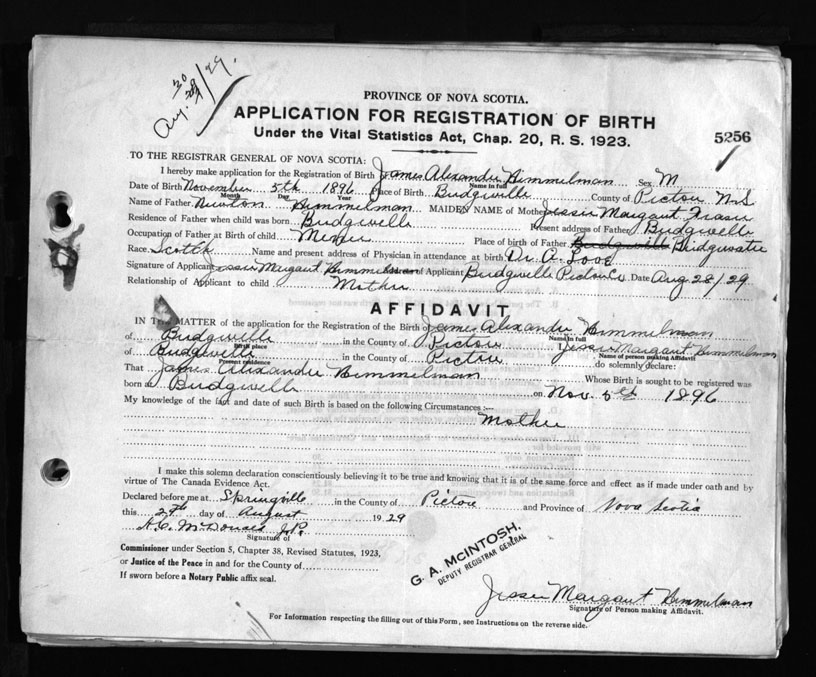 Aug. 30/29.
PROVINCE OF NOVA SCOTIA.
APPLICATION FOR REGISTRATION OF BIRTH
Under the Vital Statistics Act, Chap. 20, R. S. 1923.
5256
TO THE REGISTRAR GENERAL OF NOVA SCOTIA:
I hereby make application for the Registration of Birth of James Alexander Himmelman Sex M
Name in full
Date of Birth November 5th 1896 Place of Birth Bridgeville County of Pictou N.S
Month Day Year
Name of Father Newton Himmelman MAIDEN NAME of Mother Jessie Margaret Fraser
Residence of Father when child was born Bridgeville Present address of Father Bridgeville
Occupation of Father at Birth of child Miner Place of birth of Father Bridgeville Bridgewater
Race Scotch Name and present address of Physician in attendance at birth Dr. A.
Signature of Applicant Jessie Margaret Himmelman of Applicant Bridgeville Pictou Co Date Aug 28/29
Relationship of Applicant to child Mother
AFFIDAVIT
IN THE MATTER of the application for the Registration of the Birth of James Alexander Himmelman
Name in full
of Bridgeville in the County of Pictou Jessie Margaret Himmelman
Birth place Name of person making Affidavit
of Bridgeville in the County of Pictou do solemnly declare:
Present residence
That James Alexander Himmelman Whose Birth is sought to be registered was
born at Bridgeville on Nov. 5th 1896
My knowledge of the fact and date of such Birth is based on the following Circumstances :—
Mother
I make this solemn declaration conscientiously believing it to be true and knowing that it is of the same force and effect as if made under oath and by
virtue of The Canada Evidence Act.
Declared before me at Springville in the County of Pictou and Province of Nova Scotia
this day of August 1929
J.P.
Signature of
Commissioner under Section 5, Chapter 38, Revised Statutes, 1923,
or Justice of the Peace in and for the County of
If sworn before a Notary Public affix seal.
G. A. McINTOSH,
DEPUTY REGISTRAR GENERAL
Jessie Margaret Himmelman
Signature of Person making Affidavit.
For Information respecting the filling out of this Form, see Instructions on the reverse side.